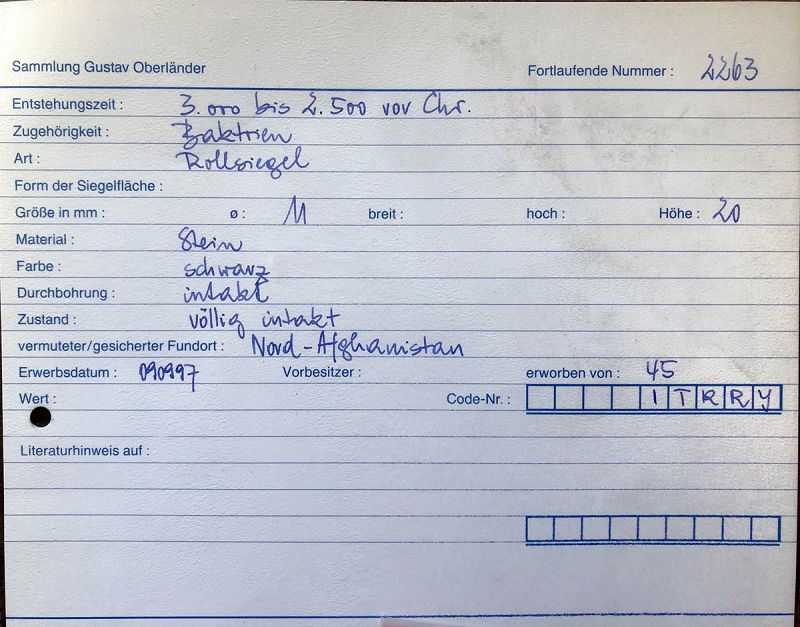 Sammlung Gustav Oberländer Fortlaufende Nummer : 2263
Entstehungszeit : 3.000 bis 2.500 vor Chr.
Zugehörigkeit : Baktrien
Art : Rollsiegel
Form der Siegelfläche :
Größe in mm : ø : 11 breit : hoch : Höhe : 20
Material : Stein
Farbe : schwarz
Durchbohrung : intakt
Zustand : völlig intakt
vermuteter/gesicherter Fundort : Nord-Afghanistan
Erwerbsdatum : 090997 Vorbesitzer : erworben von : 45
Wert : Code-Nr. : ITRRY
Literaturhinweis auf :